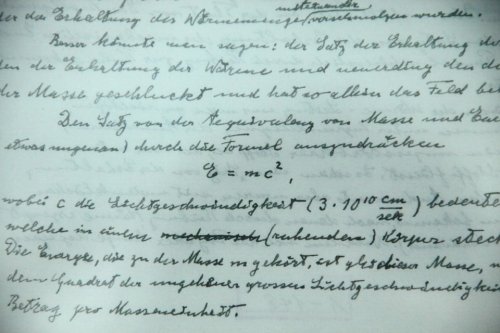 der das Erhaltung des Wärmemenge miteinander verschmolzen wurden.
Besser könnte man sagen: der Satz der Erhaltung de
den der Erhaltung der Wärme und neuerdings den de
der Masse geschluckt und hat so allein das Feld be
Den Satz von der Aequivalenz von Masse und Ene
etwas ungenau) durch die Formel auszudrücken
E = mc²,
wobei c die Lichtgeschwindigkeit (3·10¹⁰ cm/sek) bedeutet
welche in einem mechanisch (ruhenden) Körper steck
Die Energie, die zu der Masse m gehört, ist gleich dieser Masse, m
dem Quadrat der ungeheuer grossen Lichtgeschwindigkei
Betrag pro Masseneinheit.